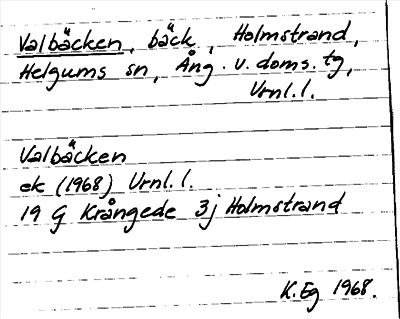 Valbäcken, bäck, Holmstrand,
Helgums sn, Ång. v. doms. tg,
Vrnl. l.
Valbäcken
ek (1968) Vrnl. l.
19 G Krångede 3j Holmstrand
K. Eg 1968.